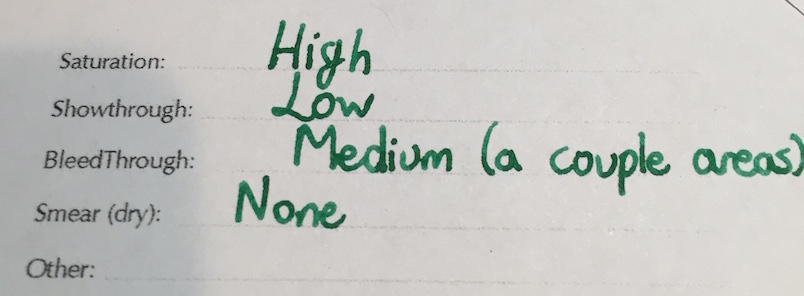 Saturation: High
Showthrough: Low
BleedThrough: Medium (a couple areas)
Smear (dry): None
Other: